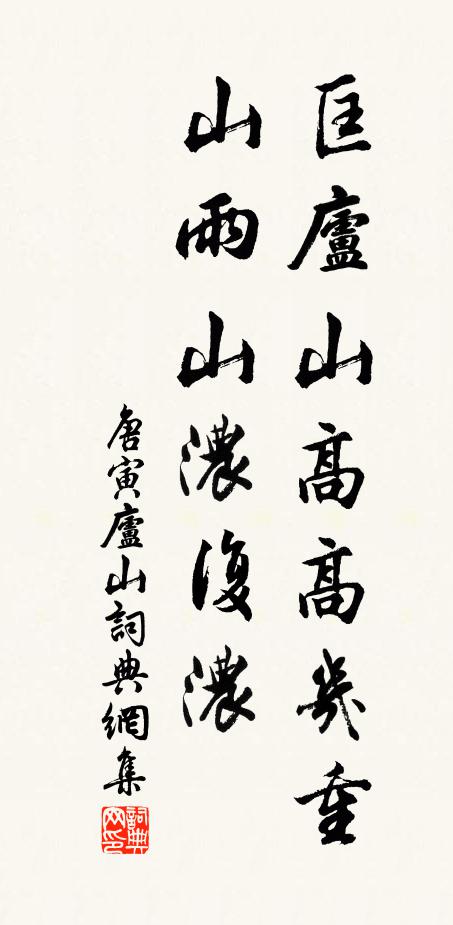 匡廬山高高幾重
山雨山濃復濃
唐寅廬山詞典網集
詞典
网印